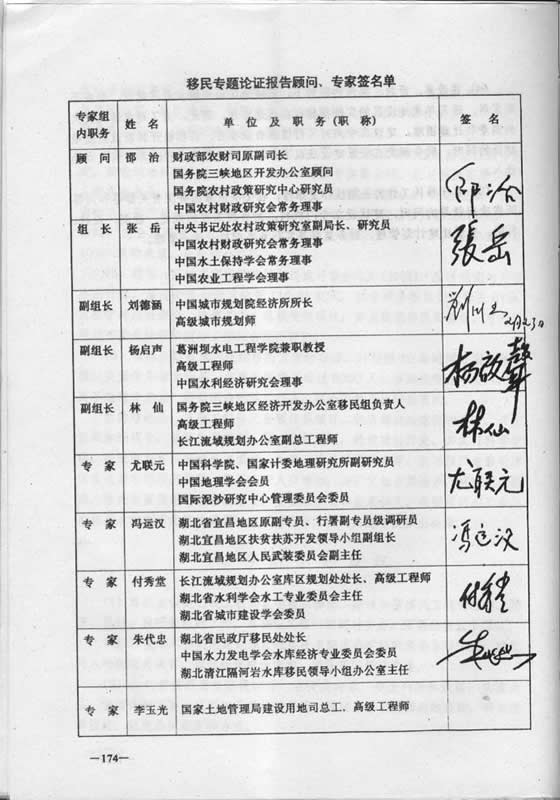 移民专题论证报告顾问、专家签名单
专家组内职务 姓名 单位及职务(职称) 签名
顾问 邵治 财政部农财司原副司长
国务院三峡地区开发办公室顾问
国务院农村政策研究中心研究员
中国农村财政研究会常务理事
邵治
组长 张岳 中央书记处农村政策研究室副局长、研究员
中国农村财政研究会常务理事
中国水土保持学会常务理事
中国农业工程学会常务理事
張岳
副组长 刘常涵 中国城市规划院经济所所长
高级城市规划师
副组长 杨启声 葛洲坝水电工程学院兼职教授
高级工程师
中国水利经济研究会理事
杨啟聲
副组长 林仙 国务院三峡地区经济开发办公室移民组负责人
高级工程师
长江流域规划办公室副总工程师
林仙
专家 尤联元 中国科学院、国家计委地理研究所副研究员
中国地理学会会员
国际泥沙研究中心管理委员会委员
尤联元
专家 冯运汉 湖北省宜昌地区原副专员、行署副专员级调研员
湖北宜昌地区扶贫扶苏开发领导小组副组长
湖北宜昌地区人民武装委员会副主任
冯运汉
专家 付秀堂 长江流域规划办公室库区规划处处长、高级工程师
湖北省水利学会水工专业委员会主任
湖北省城市建设学会委员
付秀堂
专家 朱代忠 湖北省民政厅移民处处长
中国水力发电学会水库经济专业委员会委员
湖北清江隔河岩水库移民领导小组办公室主任
专家 李玉光 国家土地管理局建设用地司总工、高级工程师
—174—